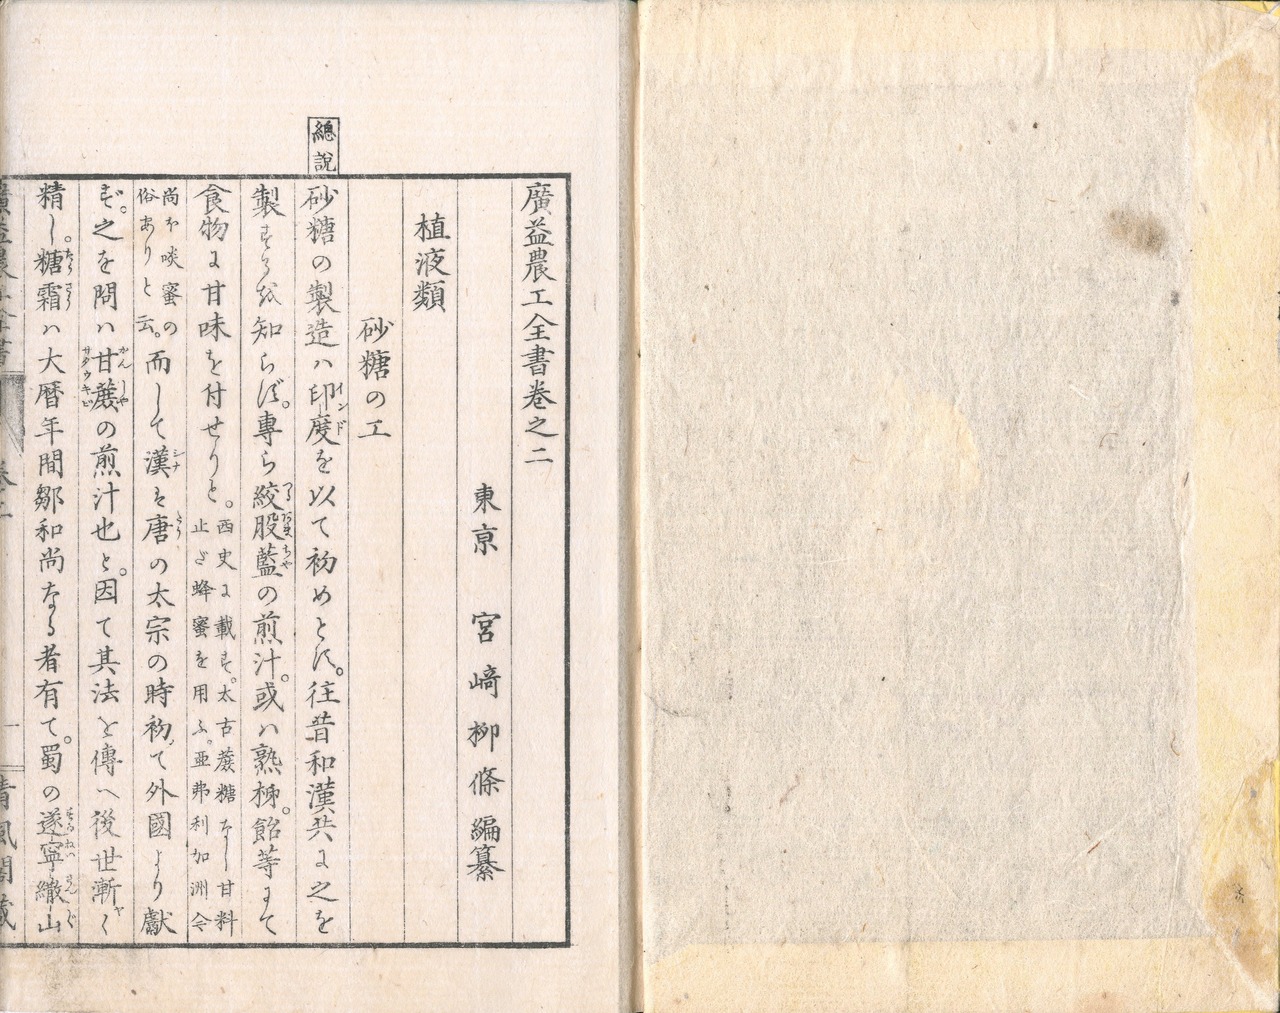 廣益農工全書卷之二
東亰 宮﨑柳條編纂
植液類
砂糖の工
總說
砂糖の製造ハ印度を以て初めとす。往昔和漢共に之を
製するを知らず。專ら絞股藍の煎汁。或ハ熟柹。飴等にて
食物に甘味を付せりと。西史に載す。太古蔗糖なし甘料
止だ蜂蜜を用ふ。亜弗利加洲今
尚ほ啖蜜の
俗ありと云。而して漢は唐の太宗の時初て外國より獻
ず。之を問ハ甘蔗の煎汁也と。因て其法を傳へ後世漸く
精し。糖霜ハ大暦年間鄒和尚なる者有て。蜀の遂寧繖山